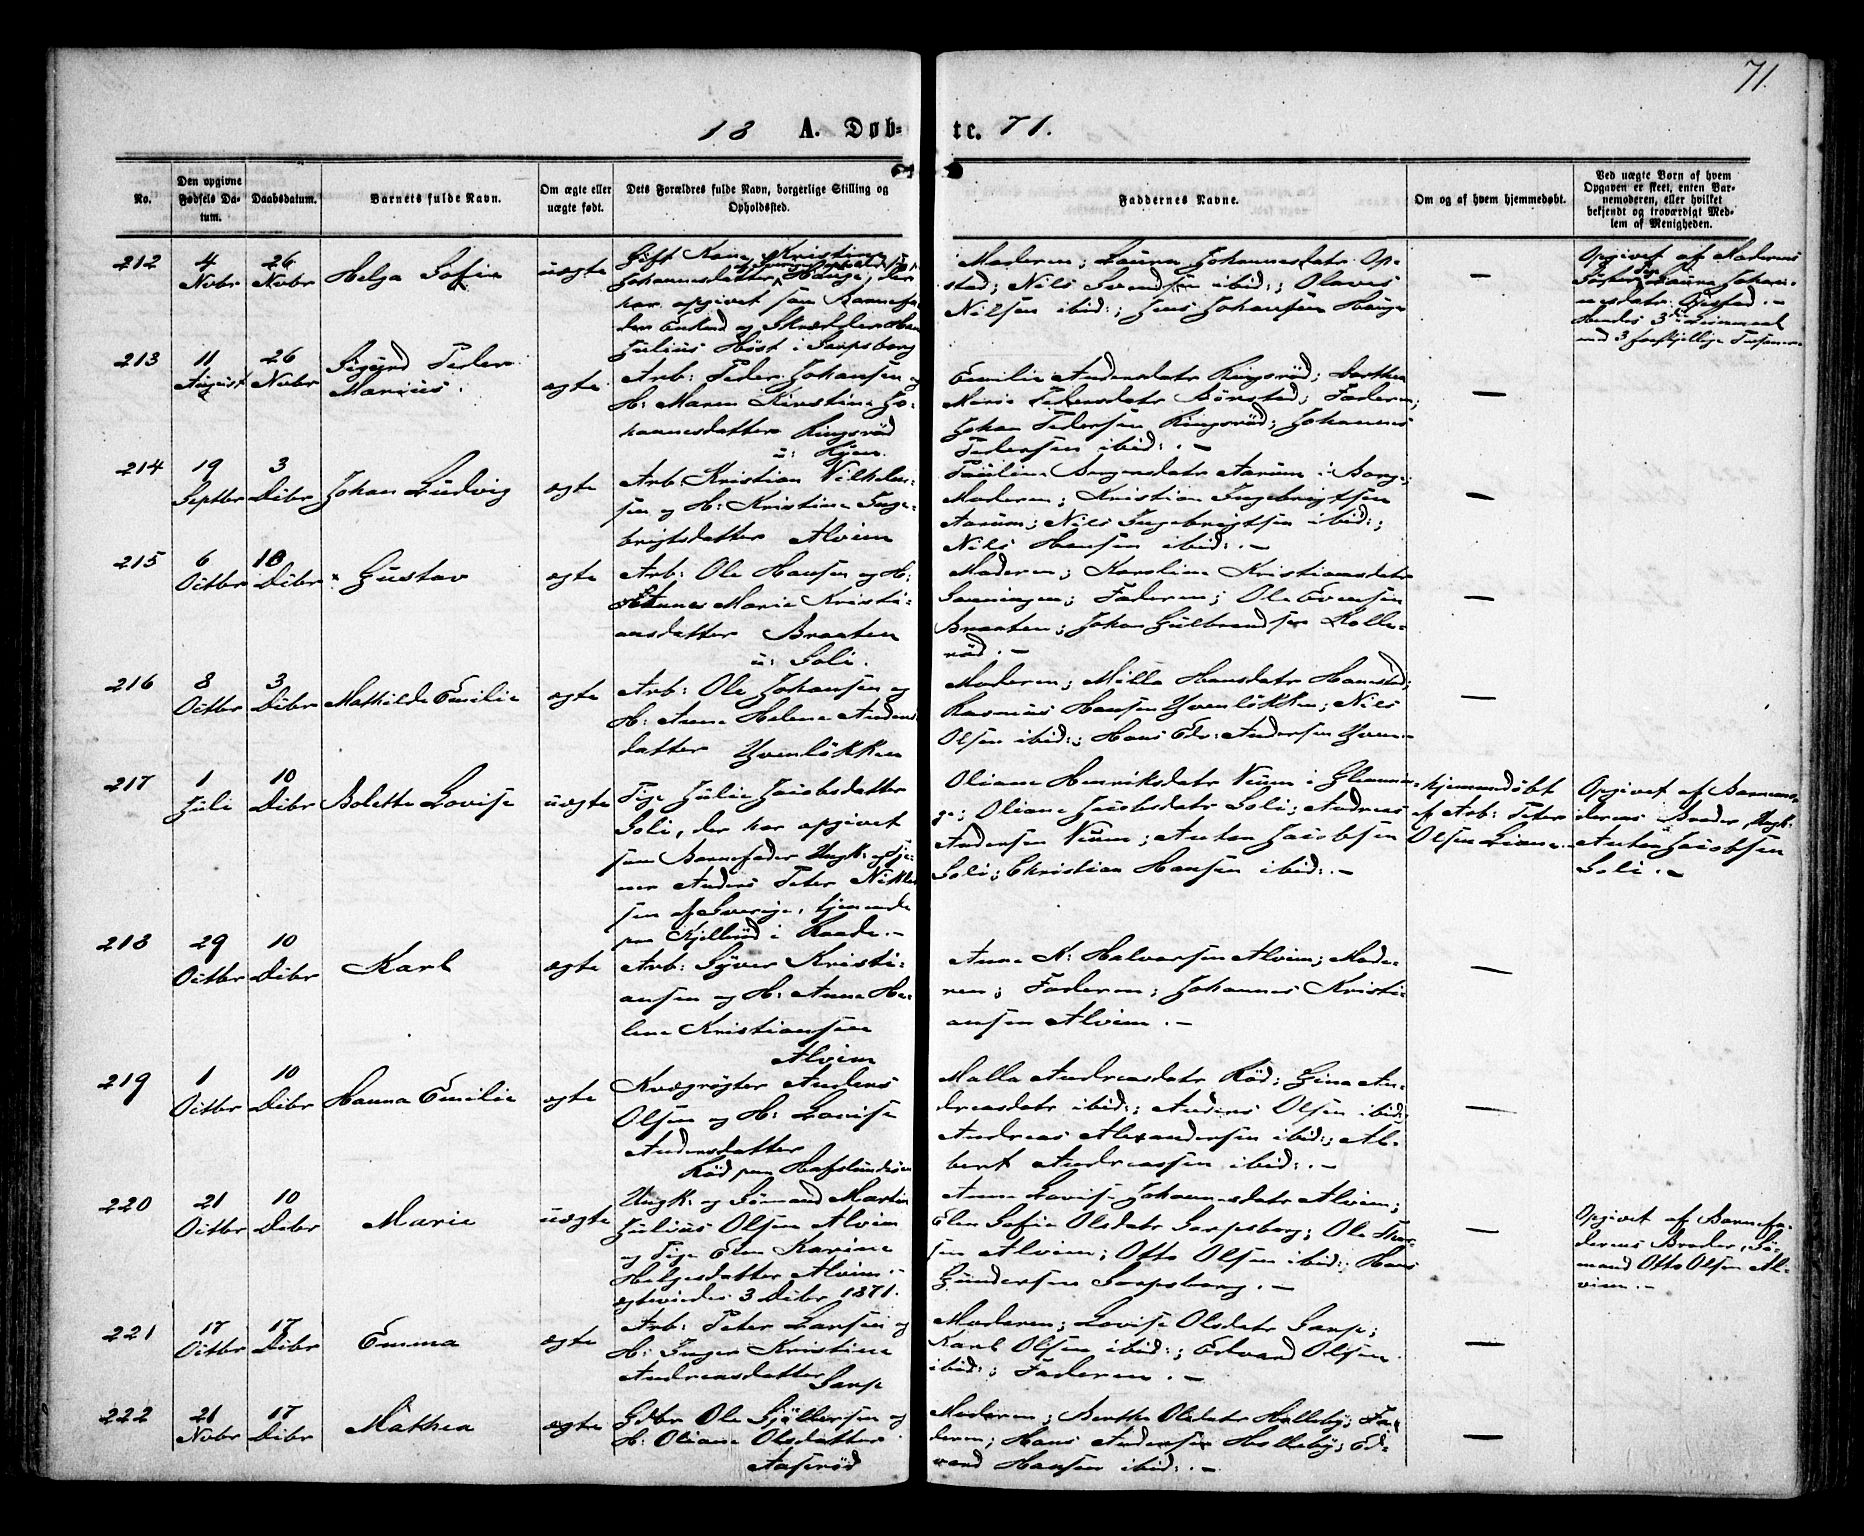 71.
18 A. Døb- te. 71.
No.
Den opgivne Fødsels Da-
tum.
Daabsdatum.
Barnets fulde Navn.
Om ægte eller
uægte født.
Dets Forældres fulde Navn, borgerlige Stilling og
Opholdssted.
Faddernes Navne.
Om og af hvem hjemmedøbt.
Ved uægte Børn af hvem
Opgaven er skeet, enten Bar-
nemoderen, eller hvilket
bekjendt og troværdigt Med-
lem af Menigheden.
212
4
Novbr
26
Novbr
Helga Sofie
uægte
Gift Kone Kristine
Johannesdatter Hauge, der
har opgivet som Barnefa-
der Enkemd og Skrædder
Julius Høst i Sarpsborg
Moderen; Laura Johannesdatr Op-
stad; Nils Svendsen ibid:; Olaves
Nilsen ibid:; Jens Johansen Hauge
—
Opgivet af Moderens
Søster Laura Johan-
nesdatr Opstad.—
Hendes 3die Leiermaal
med 3 forskjellige
213
11
August
26
Novbr
Sigurd Peder
Marius.
ægte
Arb: Peder Johansen og
H: Maren Kirstine Jo-
hannesdatter Ringsrød
u: Hjem.
Emilie Andersdatr Ringsrød; Dorthea
Marie Pedersdatr Børstad; Faderen;
Johan Pedersen Ringsrød; Johannes
Pedersen ibid:.—
—
214
19
Septbr
3
Dcbr
Johan Ludvig
ægte
Arb: Kristian Vilhelm-
sen og H: Kristine Inge-
brigtsdatter Alvim
Pauline Borgersdatr Aarum i Borge;
Moderen; Kristian Ingebrigtsen
Aarum; Nils Ingebrigtsen ibid:;
Nils Hansen ibid:.—
—
215
6
Octbr
10
Dcbr
Gustav
ægte
Arb: Ole Hansen og H:
Annes Marie Kristi-
ansdatter Braaten
u: Soli.
Moderen; Karoline Kristiansdatr
Sanningen; Faderen; Ole Evensen
Braaten; Johan Gulbrandsen Kolle-
rød.—
—
216
8
Octbr
3
Dcbr
Mathilde Emilie
ægte
Arb: Ole Johansen og
H: Anne Helene Anders-
datter Yvenløkken
Moderen; Milla Hansdatr Hansted;
Rasmus Hansen Yvenløkken; Nils
Olsen ibid:; Hans Edv: Andersen Yven.—
—
217
1
Juli
10
Dcbr
Bolette Lovise
uægte
Pige Julie Jacobsdatter
Soli, der har opgivet
som Barnefader Ungk: og Tje-
ner Anders Peter Niklas-
sen af Sverige, tjenende
paa Kjillerød i Raade.—
Oliane Henriksdatr Nuum i Glemmin-
ge; Oliane Jacobsdatr Soli; Andreas
Andersen Nuum; Anton Jacobsen
Soli; Christian Hansen ibid:.—
hjemmedøbt
af Arb: Peter
Olsen Lianen.
Opgivet af Barnemo-
derens Broder Ungk:
Anton Jacobsen
Soli.—
218
29
Octbr
10
Dcbr
Karl
ægte
Arb: Syver Kristi-
ansen og H: Anne He-
lene Kristiansen
Alvim
Anne K: Halvorsen Alvim; Mode-
ren; Faderen; Johannes Kristi-
ansen Alvim.—
—
219
1
Octbr
10
Dcbr
Hanna Emilie
ægte
Kvægrøgter Anders
Olsen og H: Lovise
Andersdatter
Rød paa Hafslundsøen
Malla Andreasdatr Rød; Gina An-
dreasdatr ibid:; Anders Olsen ibid:;
Andreas Alexandersen ibid:; Al-
bert Andreassen ibid:.—
—
220
21
Octbr
10
Dcbr
Marie
uægte
Ungk: og Sømand Martin
Julius Olsen Alvim
og Pige Elen Karine
Helgesdatter Alvim.—
ægteviedes 3 Dcbr 1871.
Anne Lovise Johannesdatr Alvim;
Elen Sofie Olsdatr Sarpsborg; Ole Thor-
sen Alvim; Otto Olsen ibid:; Hans
Gundersen Sarpsborg.—
—
Opgivet af Barnefa-
derens Broder, Sø-
mand Otto Olsen Al-
vim.—
221
17
Octbr
17
Dcbr
Emma
ægte
Arb: Peter Larsen og
H: Inger Kristine
Andreasdatter
Sarp
Moderen; Lovise Olsdatr Sarp;
Karl Olsen ibid:; Edvard Olsen
ibid:; Faderen.—
—
222
21
Novbr
17
Dcbr
Mathea
ægte
Gdbr Ole Gjølbersen og
H: Oliane Olsdatter
Aaserød
Moderen; Berthe Olsdatr Holleby; Fa-
deren; Hans Andersen Holleby; Ed-
vard Hansen ibid:.—
—